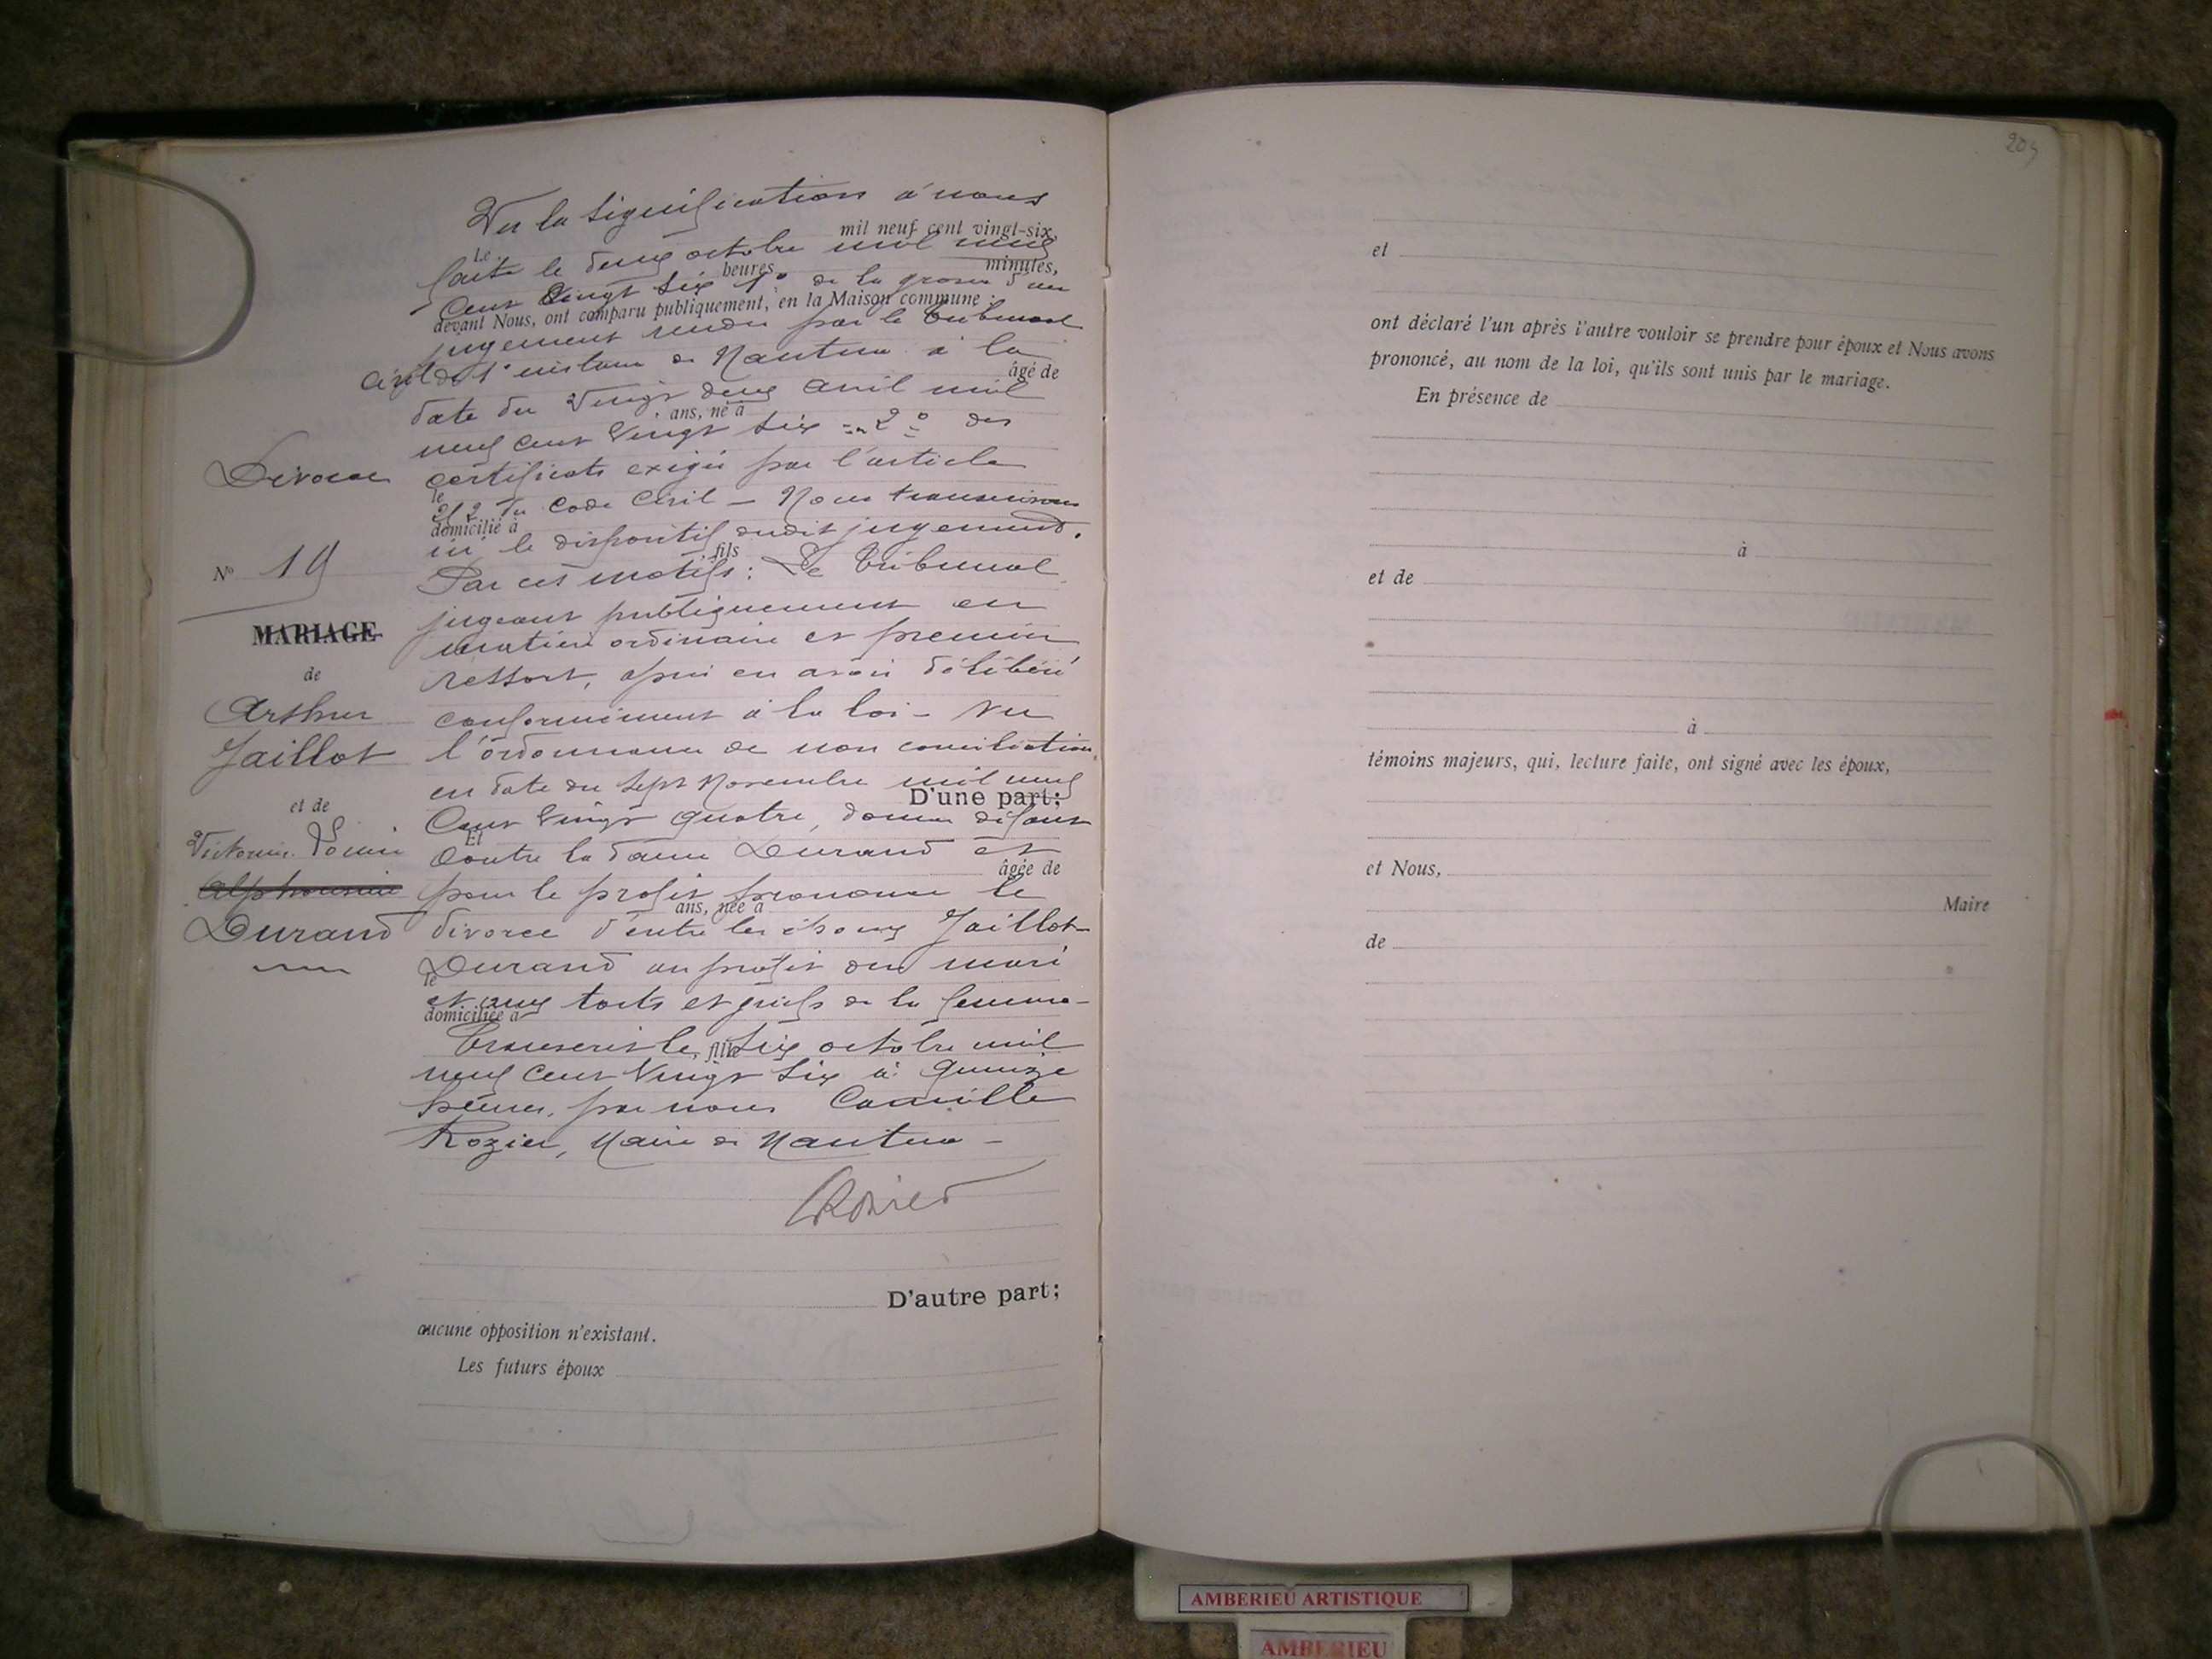 Divorce
N° 19
MARIAGE
de
Arthur
Jaillot
et de
Victorine Louise
Alphonsine
Durand
Vu la signification à nous
mil neuf cent vingt-six,
Le
faite le deux octobre mil neuf
heures minutes,
Cent Vingt six 1° de la grosse d'un
devant Nous, ont comparu publiquement, en la Maison commune :
jugement rendu par le Tribunal
Civil de 1e instance de Nantua à la
âgé de
date du Vingt deux Avril mil
ans, né à
neuf cent Vingt six = 2° des
certificats exigés par l'article
le
252 du Code Civil – Nous transcrivons
domicilié à
ici le dispositif dudit jugement.
fils
Par ces motifs : Le Tribunal
jugeant publiquement en
matière ordinaire et premier
ressort, après en avoir délibéré
conformément à la loi – Vu
l'ordonnance de non conciliation
en date du sept Novembre mil neuf
D'une part;
Cent Vingt quatre, donne défaut
Et
contre la dame Durand et
âgée de
pour le profit prononce le
ans, née à
divorce d'entre les époux Jaillot-
Durand au profit du mari
le
et aux torts et griefs de la femme –
domiciliée à
Transcrit le six octobre mil
fille
neuf cent Vingt six à quinze
heures, par nous Camille
Rozier, Maire de Nantua –
CRozier
D'autre part;
aucune opposition n'existant.
Les futurs époux
et
ont déclaré l'un après l'autre vouloir se prendre pour époux et Nous avons
prononcé, au nom de la loi, qu'ils sont unis par le mariage.
En présence de
à
et de
à
témoins majeurs, qui, lecture faite, ont signé avec les époux,
et Nous,
Maire
de
AMBERIEU ARTISTIQUE
AMBERIEU